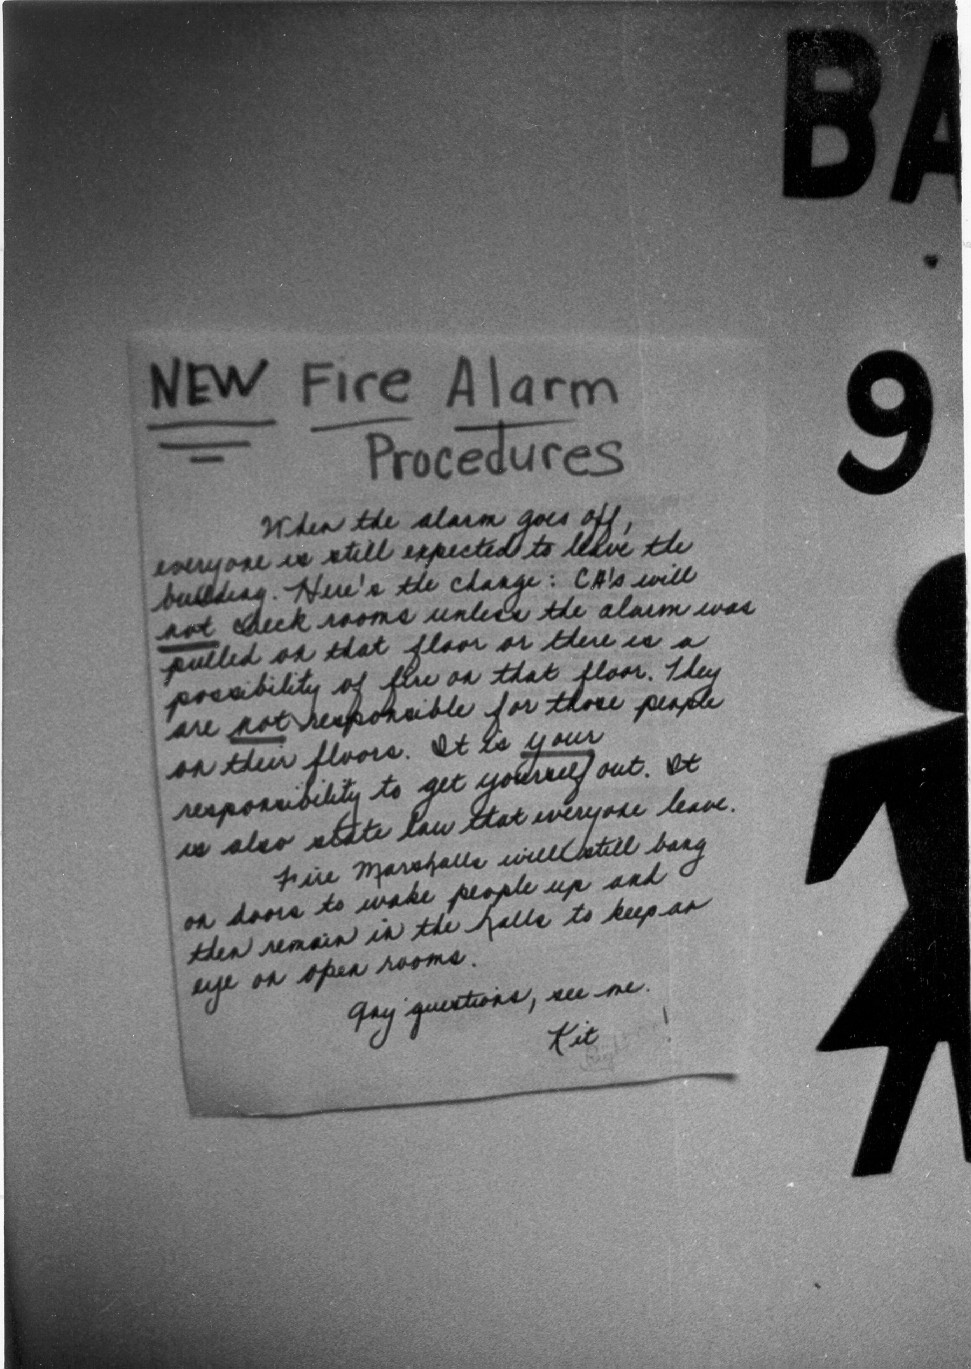 BA
9
NEW Fire Alarm
Procedures
When the alarm goes off,
everyone is still expected to leave the
building. Here's the change: CA's will
not check rooms unless the alarm was
pulled on that floor or there is a
possibility of fire on that floor. They
are not responsible for those people
on their floors. It is your
responsibility to get yourself out. It
is also state law that everyone leave.
Fire Marshalls will still bang
on doors to wake people up and
then remain in the halls to keep an
eye on open rooms.
Any questions, see me.
Kit